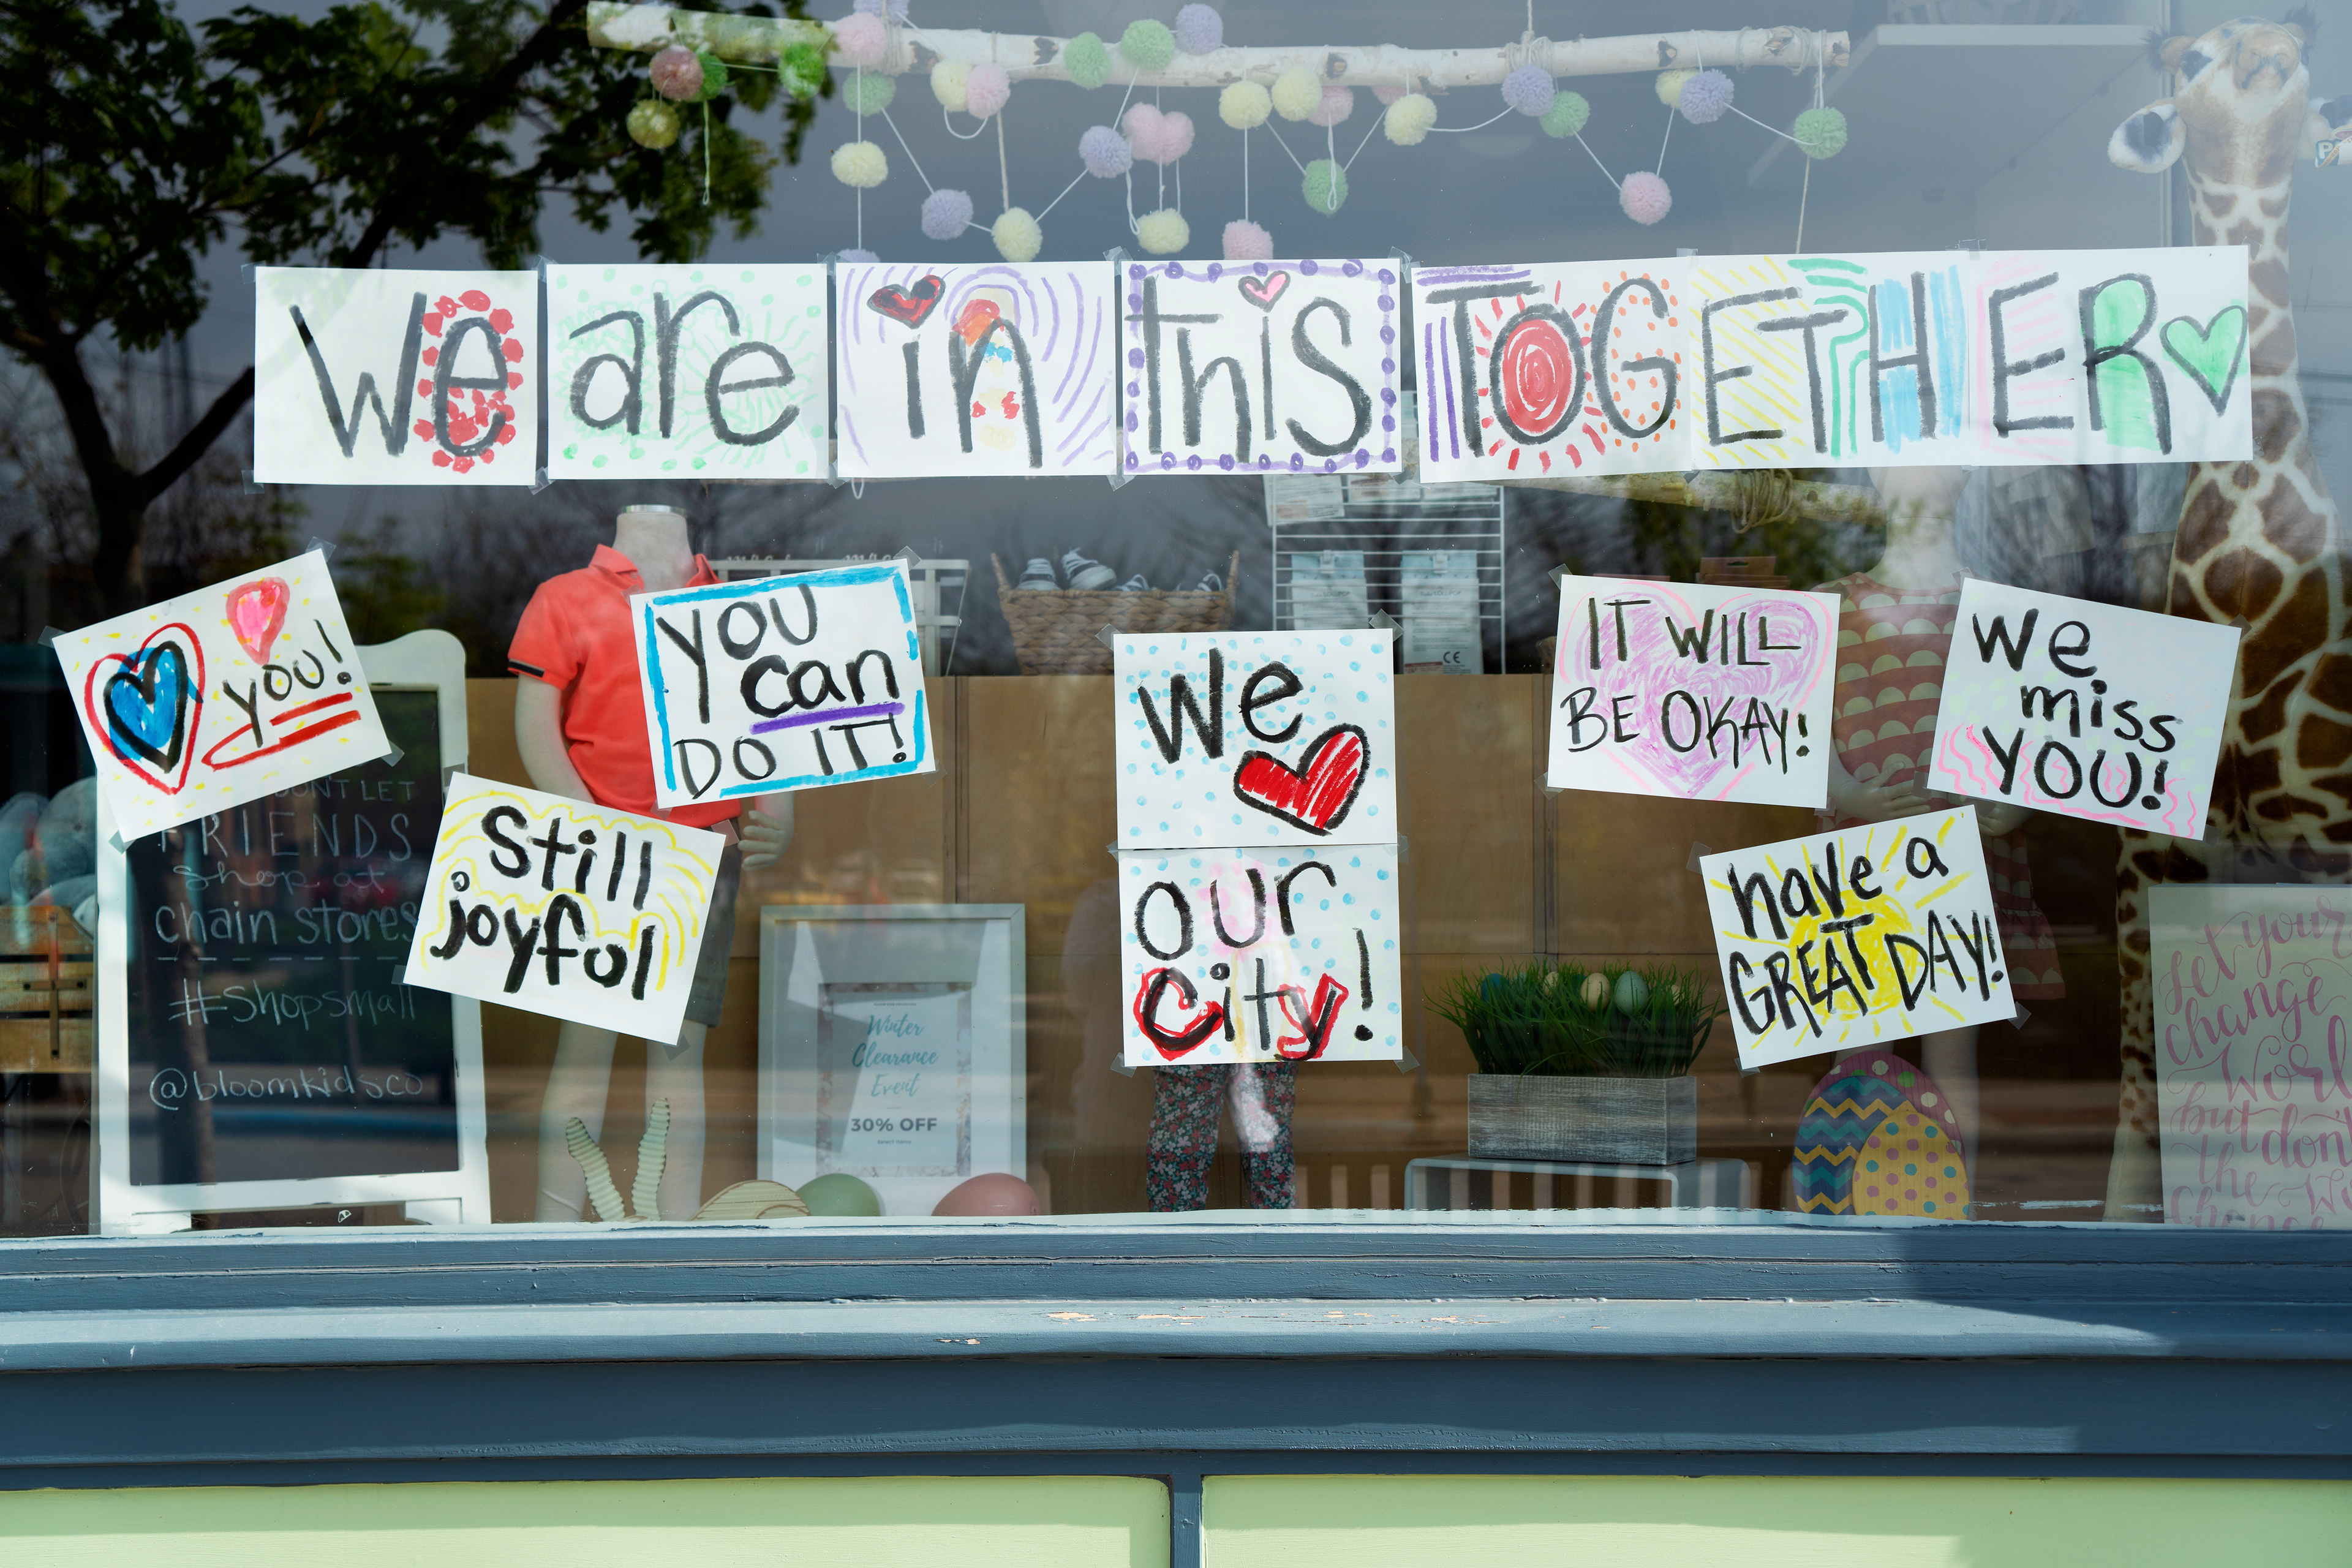 We are in this TOGETHER
you!
YOU
can
DO IT!
Still
joyful
We
our
City!
IT WILL
BE OKAY!
We
miss
YOU!
have a
GREAT DAY!
DON'T LET
FRIENDS
shop at
chain stores
#shopsmall
@bloomkidsco
Winter
Clearance
Event
30% OFF
Select Items
Let your
change
World
but don't
the
Change